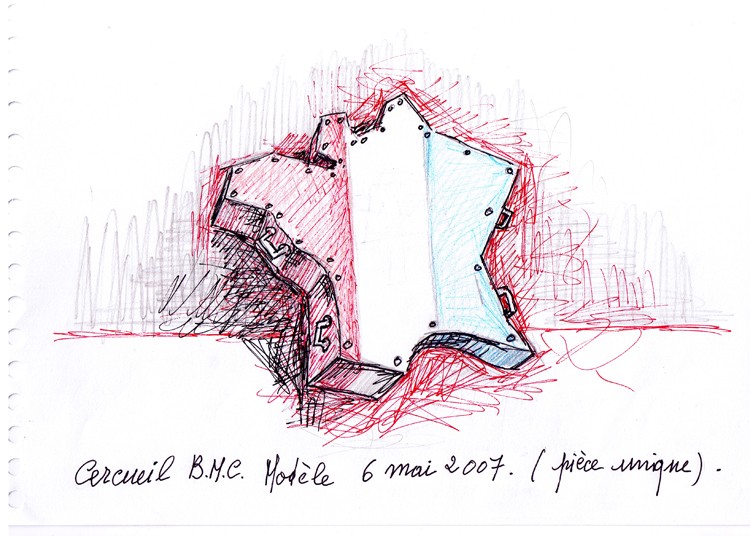 Cercueil B.M.C. Modèle 6 mai 2007. (pièce unique).